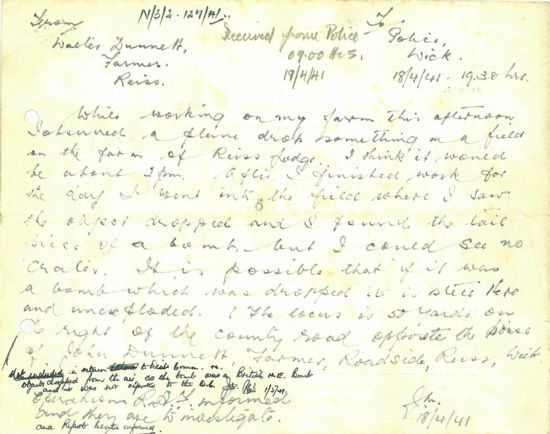 N/3/2 - 127/41
From
Walter Dunnett,
Farmer,
Reiss.
Received from Police
09.00 Hrs.
19/4/41
To
Police,
Wick.
18/4/41 - 19.30 hrs.
While working on my farm this afternoon
I observed a plane drop something in a field
on the farm of Reiss Lodge. I think it would
be about 3 pm. After I finished work for
the day I went into the field where I saw
the object dropped and I found the tail
piece of a bomb, but I could see no
Crater. It is possible that if it was
a bomb which was dropped it is still there
and unexploded. (The locus is 50 yards on
to right of the county road opposite the house
of John Dunnett, Farmer, Roadside, Reiss, Wick
Not included in return to
objects dropped from the air, as the bomb was a British H.E. Bomb
and was not reported to the
Operations R.A.F. informed
and they are to investigate.
18/4/41